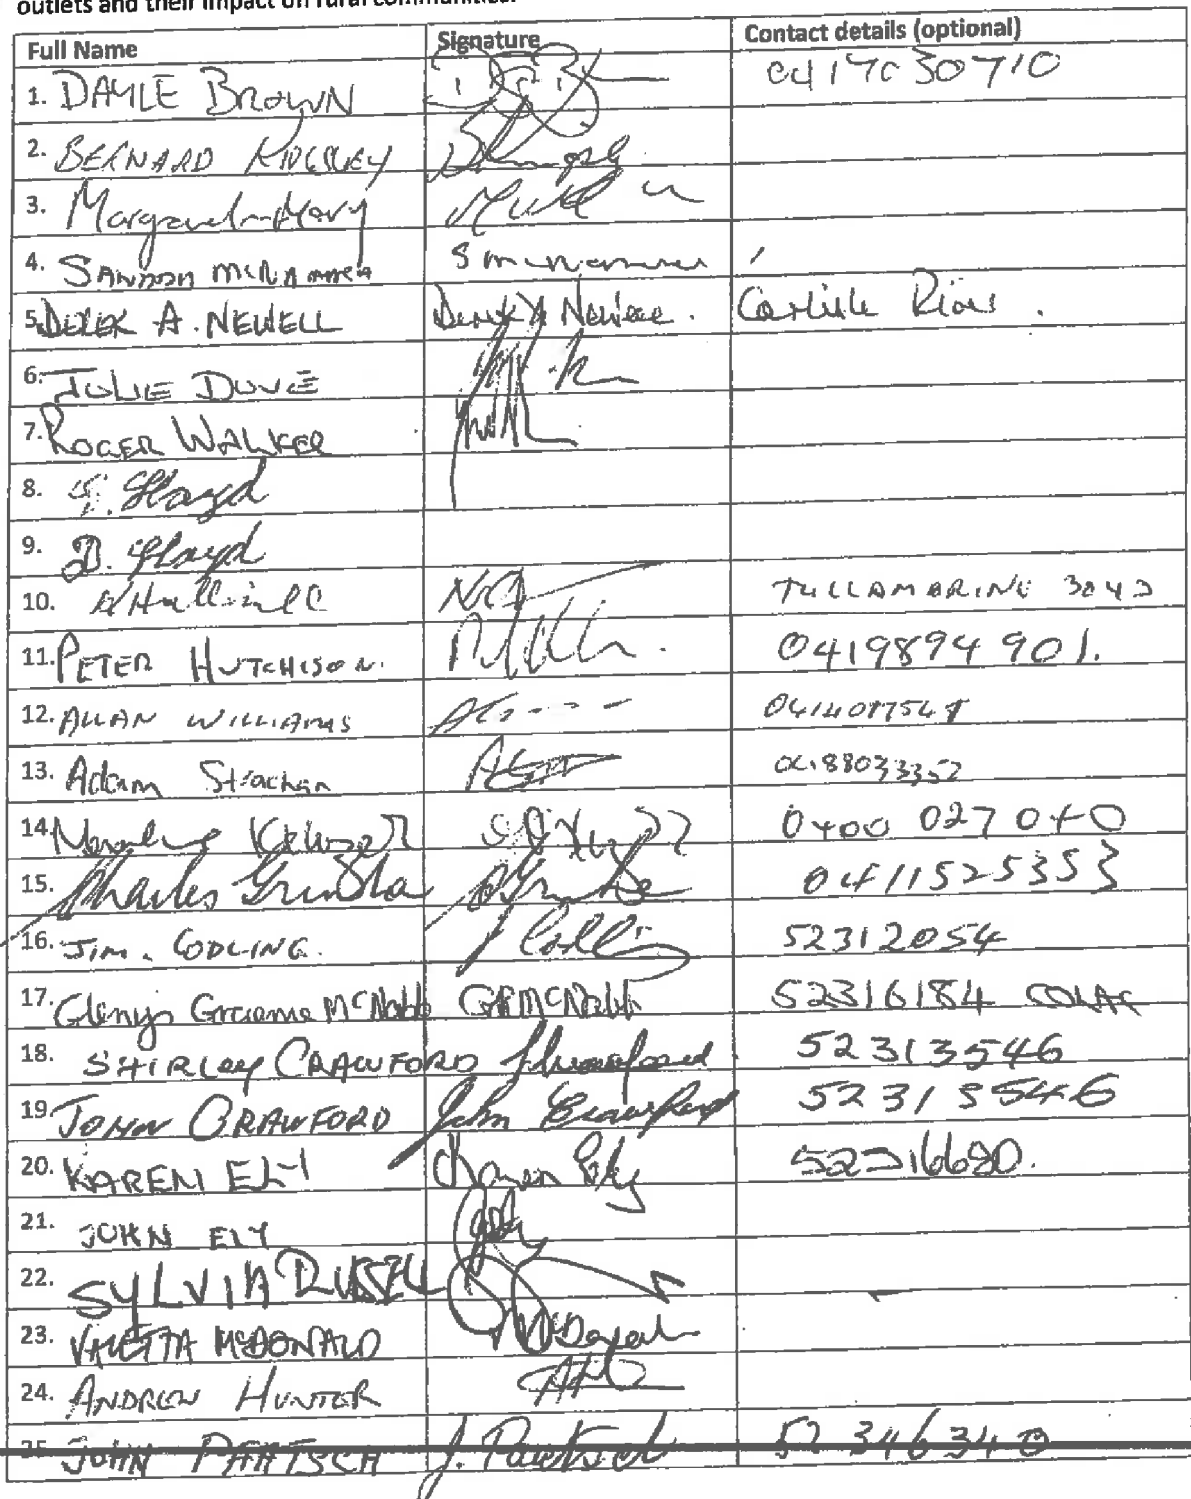 outlets and their impact on rural communities.
Full Name Signature Contact details (optional)
1. DAYLE BROWN 0417030710
2. BERNARD RIDGLEY
3. Margaret-Mary
4. SANDRA MCNAMARA S McNamara
5. DEREK A. NEWELL Derek A Newell. Carlisle River.
6. JULIE DOVE
7. ROGER WALKER
8. Lloyd
9. D. Lloyd
10. TULLAMARINE 3043
11. PETER HUTCHISON. 0419894901.
12. ALLAN WILLIAMS
13. Adam Strachan
14. 0400 027 040
15. Charles 0411525353
16. JIM. CODLING. 52312054
17. Glenys Graeme McNabb GR McNabb 52316184 COLAC
18. SHIRLEY CRAWFORD 52313546
19. JOHN CRAWFORD John Crawford 52313546
20. KAREN ELY Karen Ely
21. JOHN ELY
22. SYLVIA RUSSELL
23. VALETTA MCDONALD
24. ANDREW HUNTER
25 JOHN PAATSCH J. Paatsch 52346340